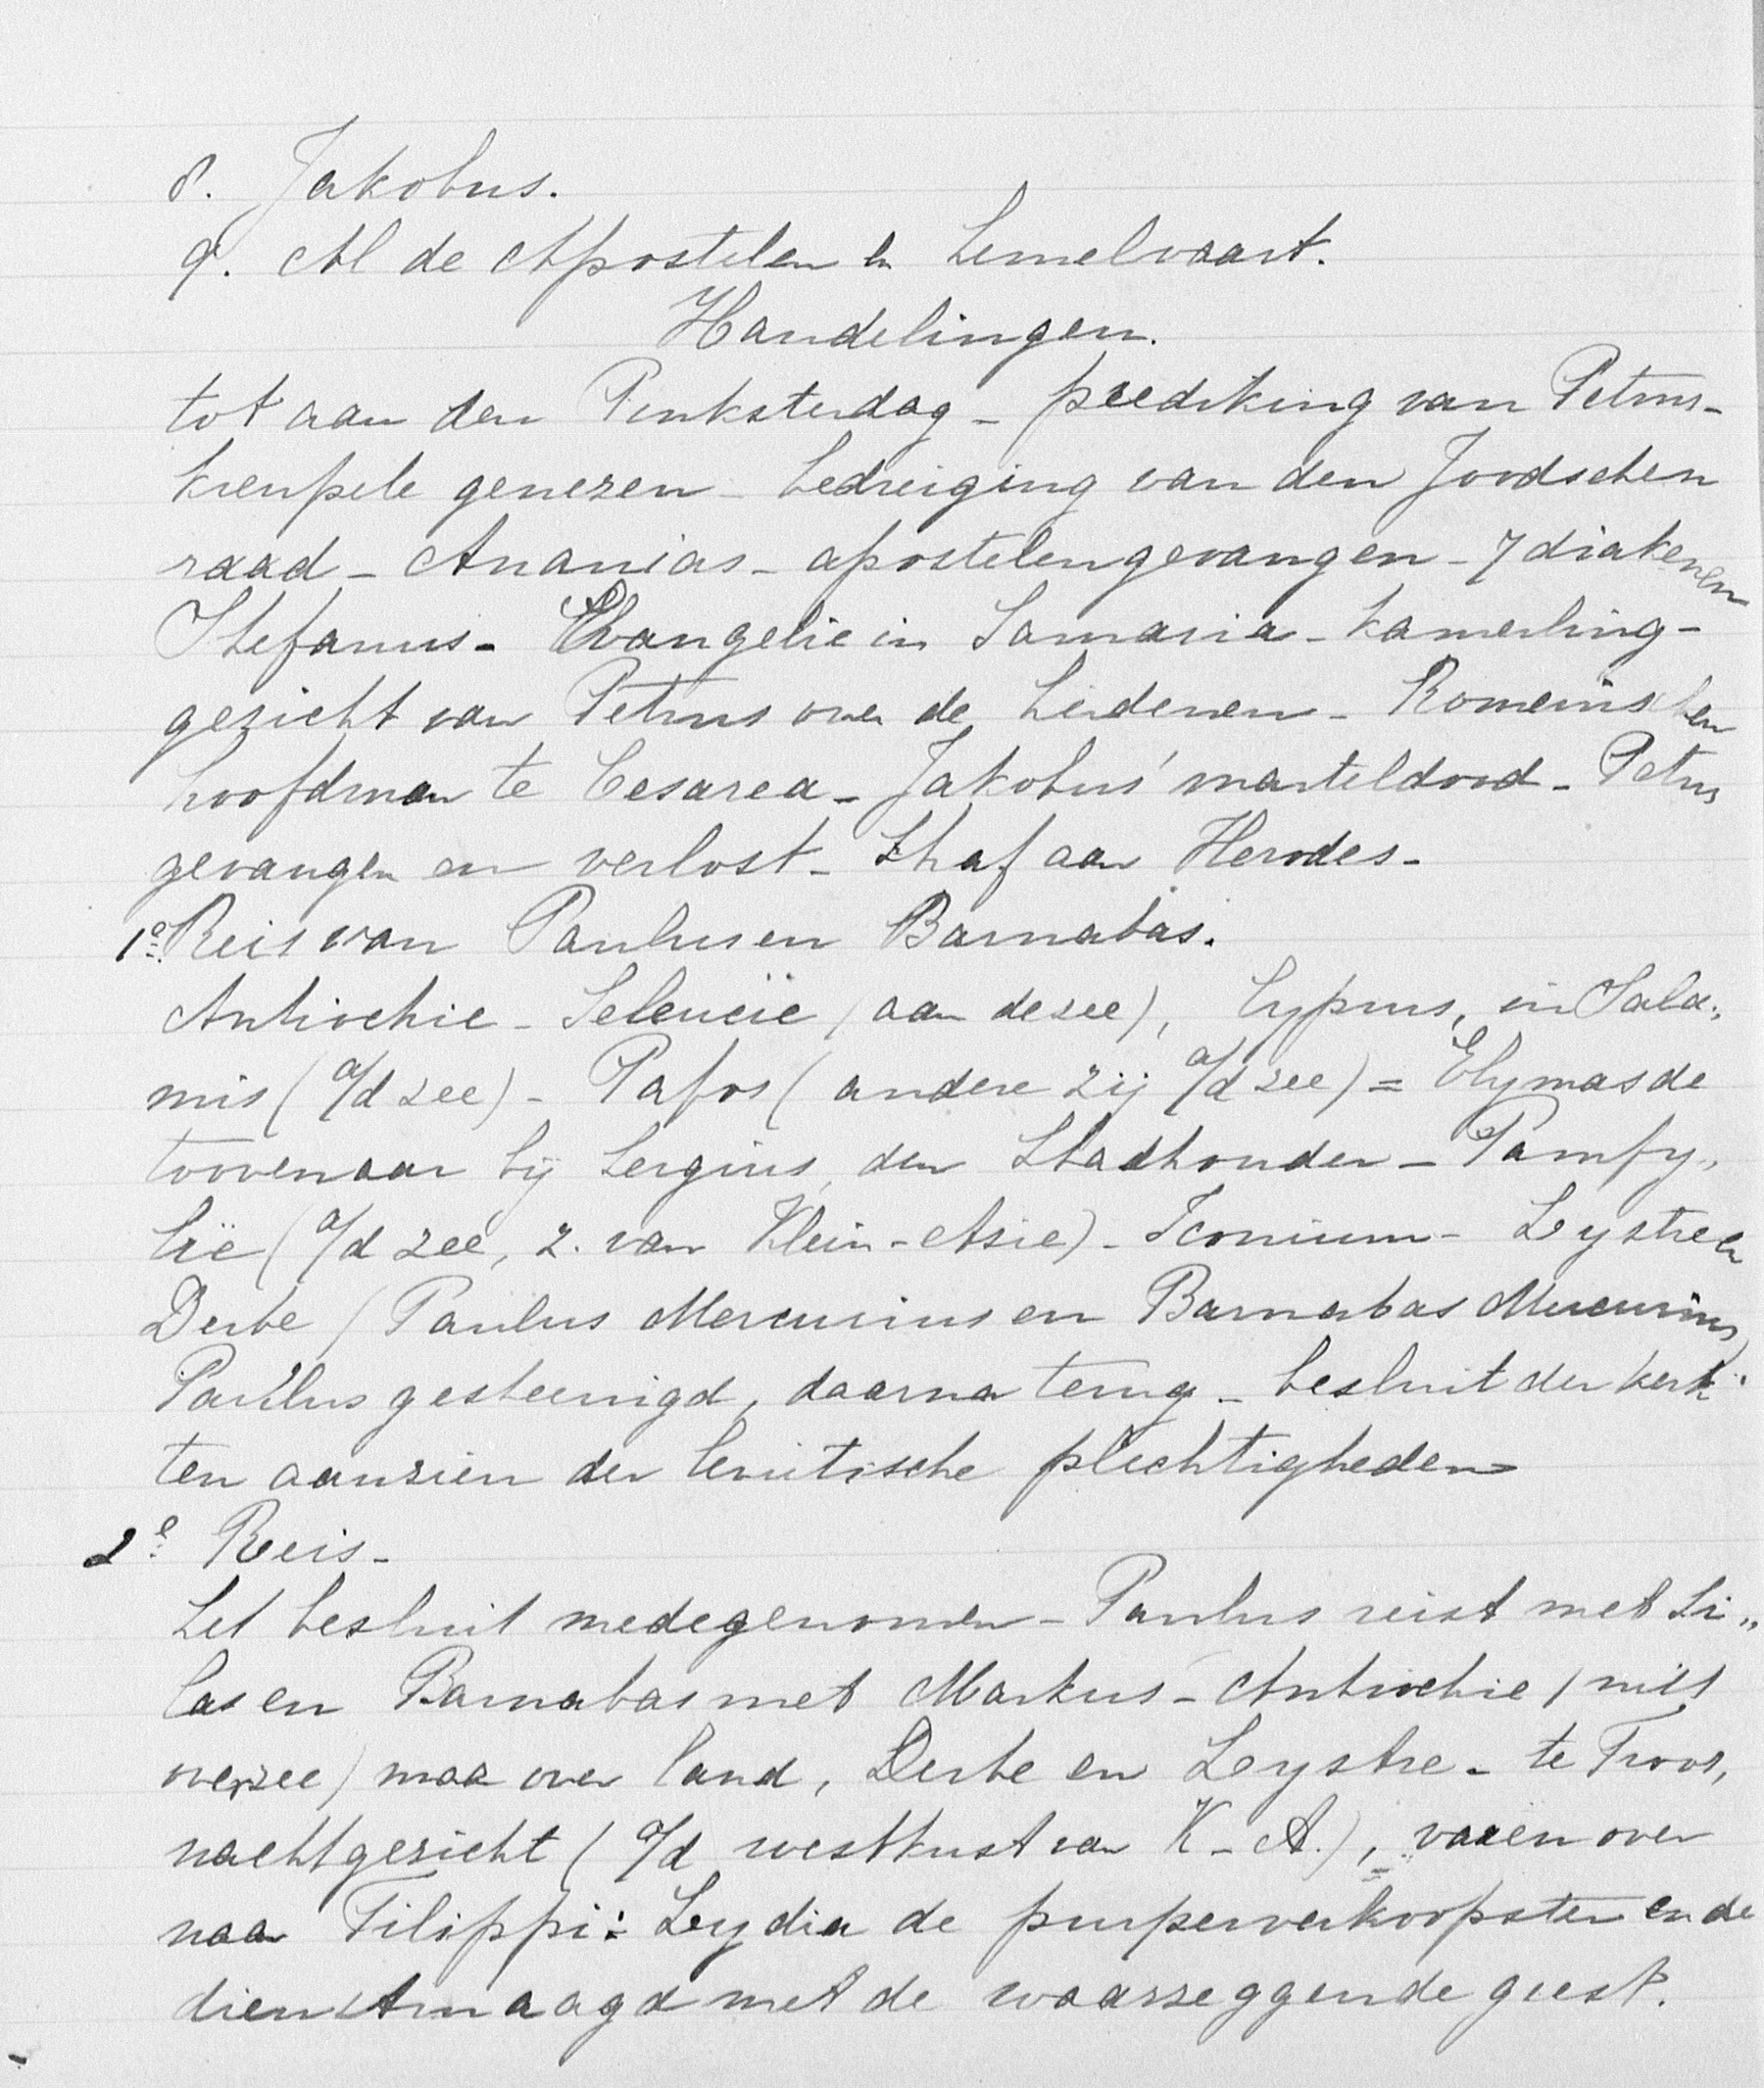 8. Jakobus.
9. Al de Apostelen en hemelvaart.
Handelingen.
tot aan den Pinksterdag - prediking van Petrus -
kreupele genezen - bedreiging van den Joodschen
raad - Ananias - apostelen gevangen - 7 diakenen
Stefanus - Evangelie in Samaria - kamerling -
gezicht van Petrus over de heidenen - Romeinschen
hoofdman te Cesarea - Jakobus' marteldood - Petrus
gevangen en verlost - Straf aan Herodes -
1e Reis van Paulus en Barnabas.
Antiochie - Seleucië (aan de zee), Cyprus, in Sala„
mis (a/d zee) - Pafos (andere zij a/d zee) = Elymas de
toovenaar bij Sergius, den Stadhouder - Pamfy„
lië (a/d zee, z. van Klein-Asie) - Iconium - Lystre en
Derbe (Paulus Mercurius en Barnabas Mercurius)
Paulus gesteenigd, daarna terug - besluit der kerk.
ten aanzien der levitische plechtigheden
2e Reis -
het besluit medegenomen - Paulus reist met Si„
las en Barnabas met Markus - Antiochie (niet
over zee) maar over land, Derbe en Leystre - te Troos,
nachtgezicht (a/d westkust van K-A.), varen over
naar Filippi: Leydia de purperverkoopster en de
dienstmaagd met de waarzeggende geest.